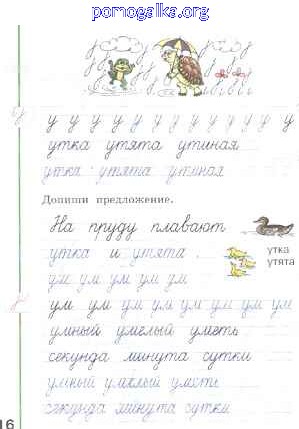 pomogalka.org
у у у у у у у у у у у у у
утка утята утиная
утка утята утиная
Допиши предложение.
На пруду плавают
утка и утята.
утка
утята
ум ум ум ум ум
ум ум ум ум ум ум ум ум
умный умелый уметь
секунда минута сутки
умный умелый уметь
секунда минута сутки
16